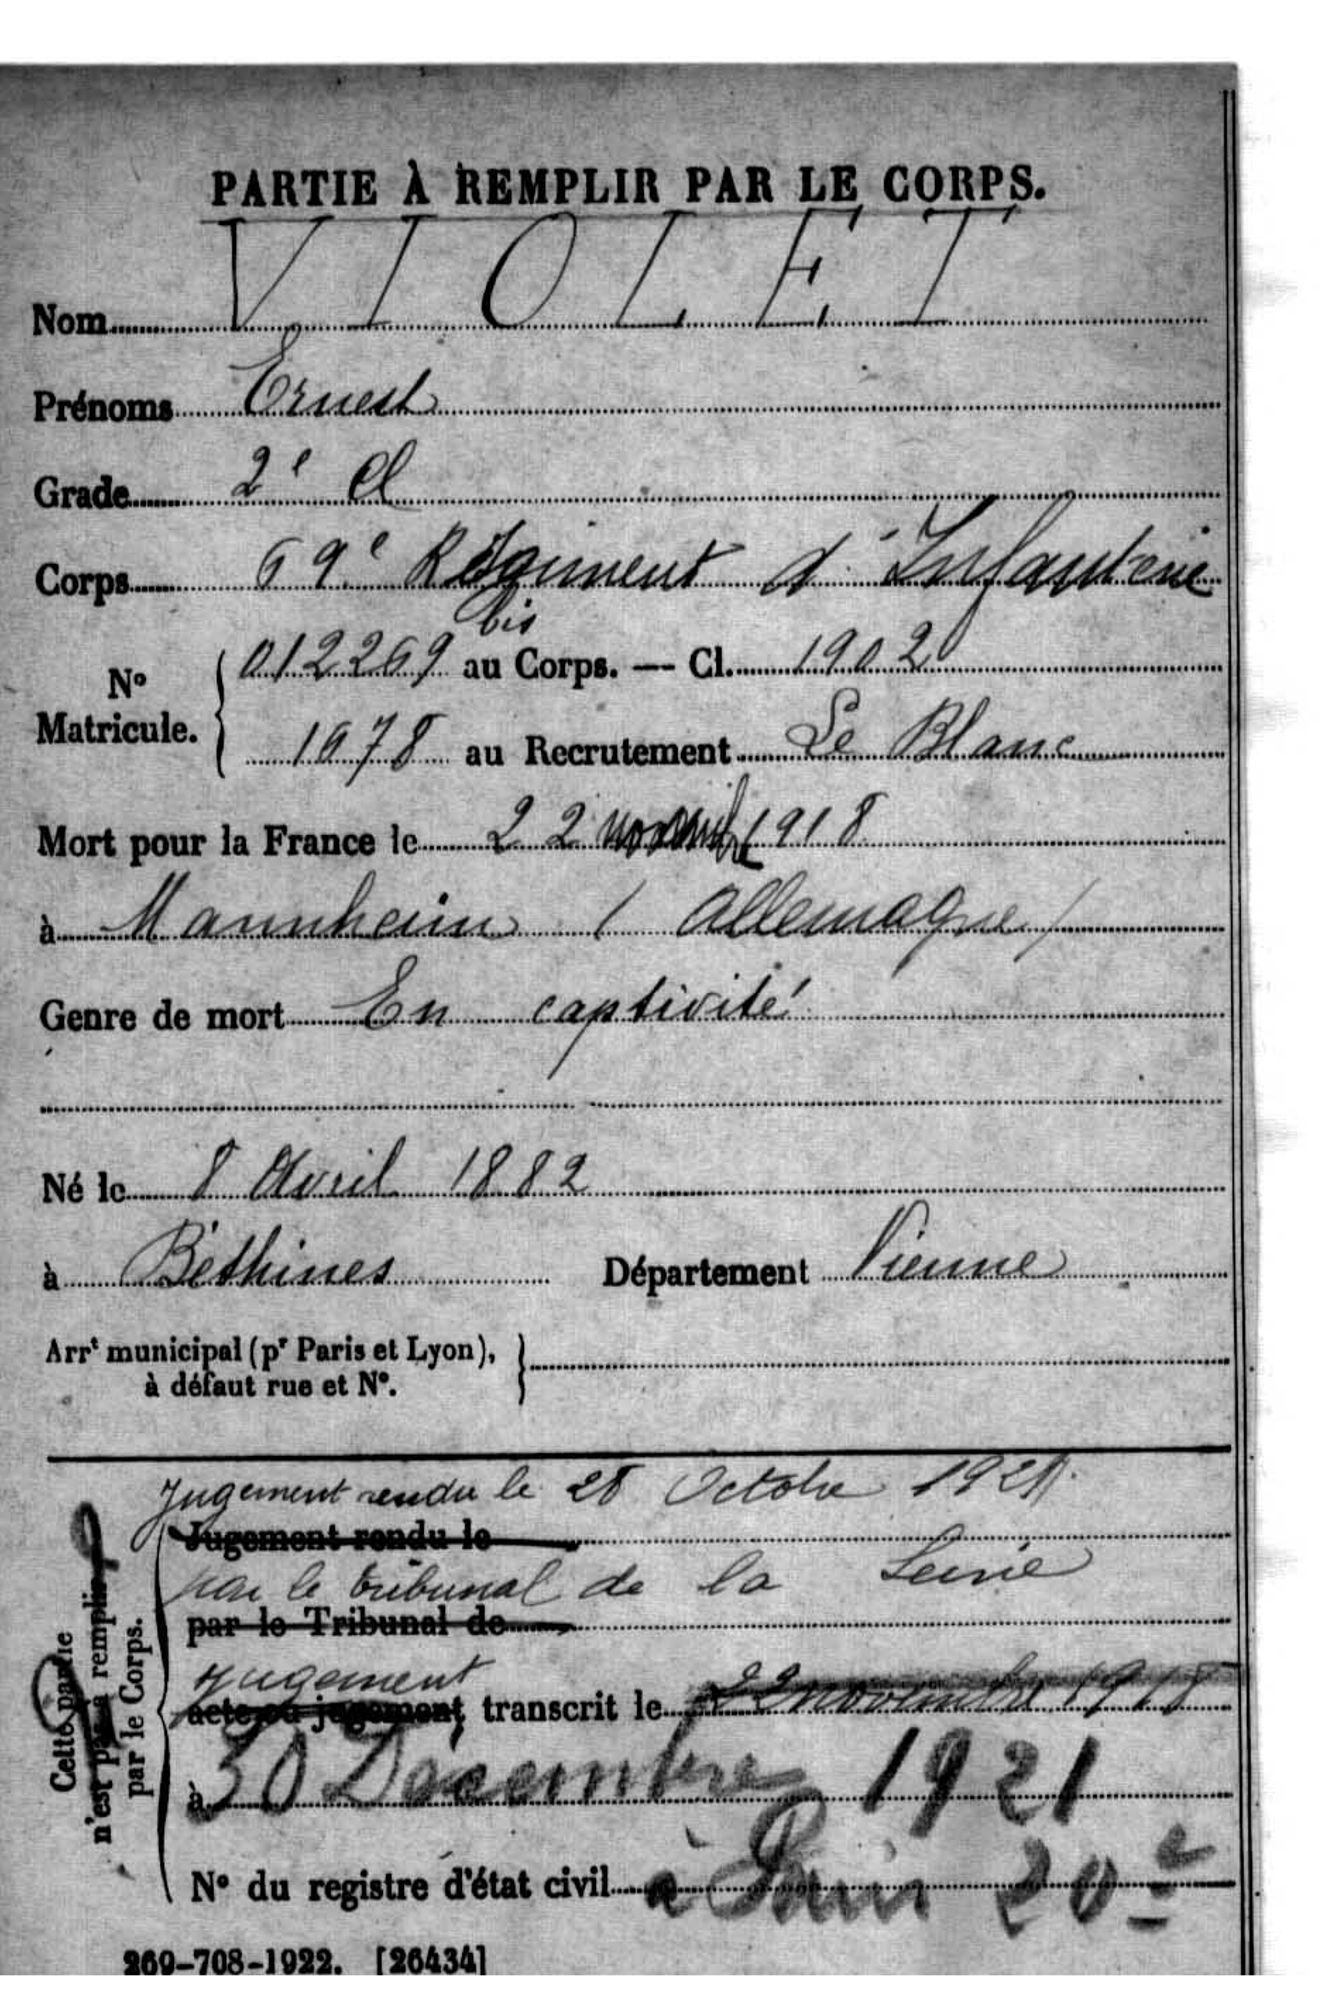 PARTIE À REMPLIR PAR LE CORPS.
Nom VIOLET
Prénoms Ernest
Grade 2e Cl
Corps 69e Régiment d'Infanterie
bis
N° Matricule. 012269 au Corps. — Cl. 1902
1678 au Recrutement Le Blanc
Mort pour la France le 22 novembre 1918
à Mannheim (Allemagne)
Genre de mort En captivité
Né le 8 Avril 1882
à Béthines Département Vienne
Arrt municipal (pr Paris et Lyon),
à défaut rue et N°.
Cette partie
n'est pas à remplir
par le Corps.
Jugement rendu le 28 Octobre 1921
Jugement rendu le
par le tribunal de la Seine
par le Tribunal de
jugement
acte ou jugement transcrit le 22 novembre 1918
à 30 Décembre 1921
N° du registre d'état civil à Paris 20e
269-708-1922. [26434]